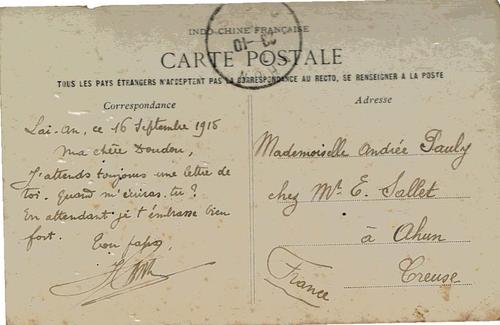 INDO-CHINE FRANÇAISE
CARTE POSTALE
TOUS LES PAYS ÉTRANGERS N'ACCEPTENT PAS LA CORRESPONDANCE AU RECTO, SE RENSEIGNER A LA POSTE
Correspondance
Laï-An, ce 16 Septembre 1915
Ma chère Doudou,
J'attends toujours une lettre de
toi. Quand m'écriras-tu ?
En attendant je t'embrasse bien
fort.
Ton papa,
Adresse
Mademoiselle Andrée Pauly
chez Mr E. Sallet
à Ahun
Creuse
France